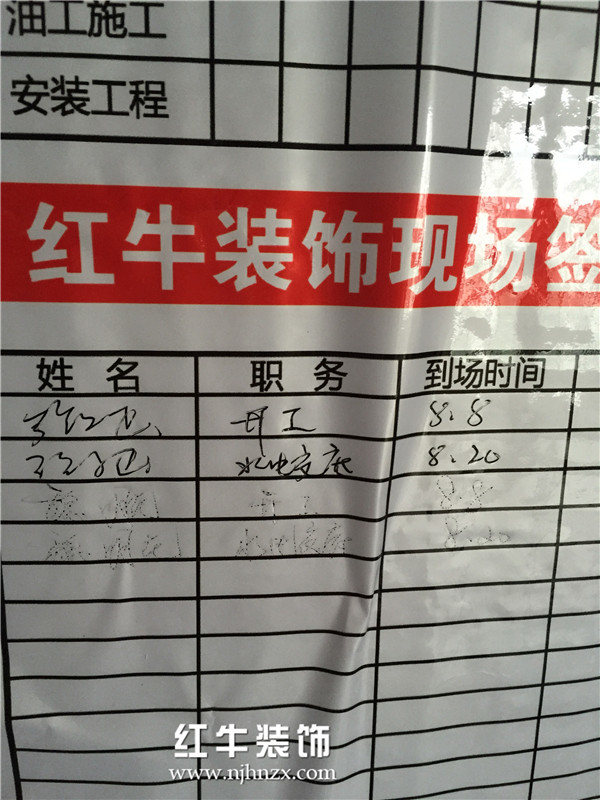 油工施工
安装工程
红牛装饰现场签
姓 名 职 务 到场时间
开工 8.8
水电交底 8.20
开工 8.8
水电交底 8.20
红牛装饰
www.njhnzx.com